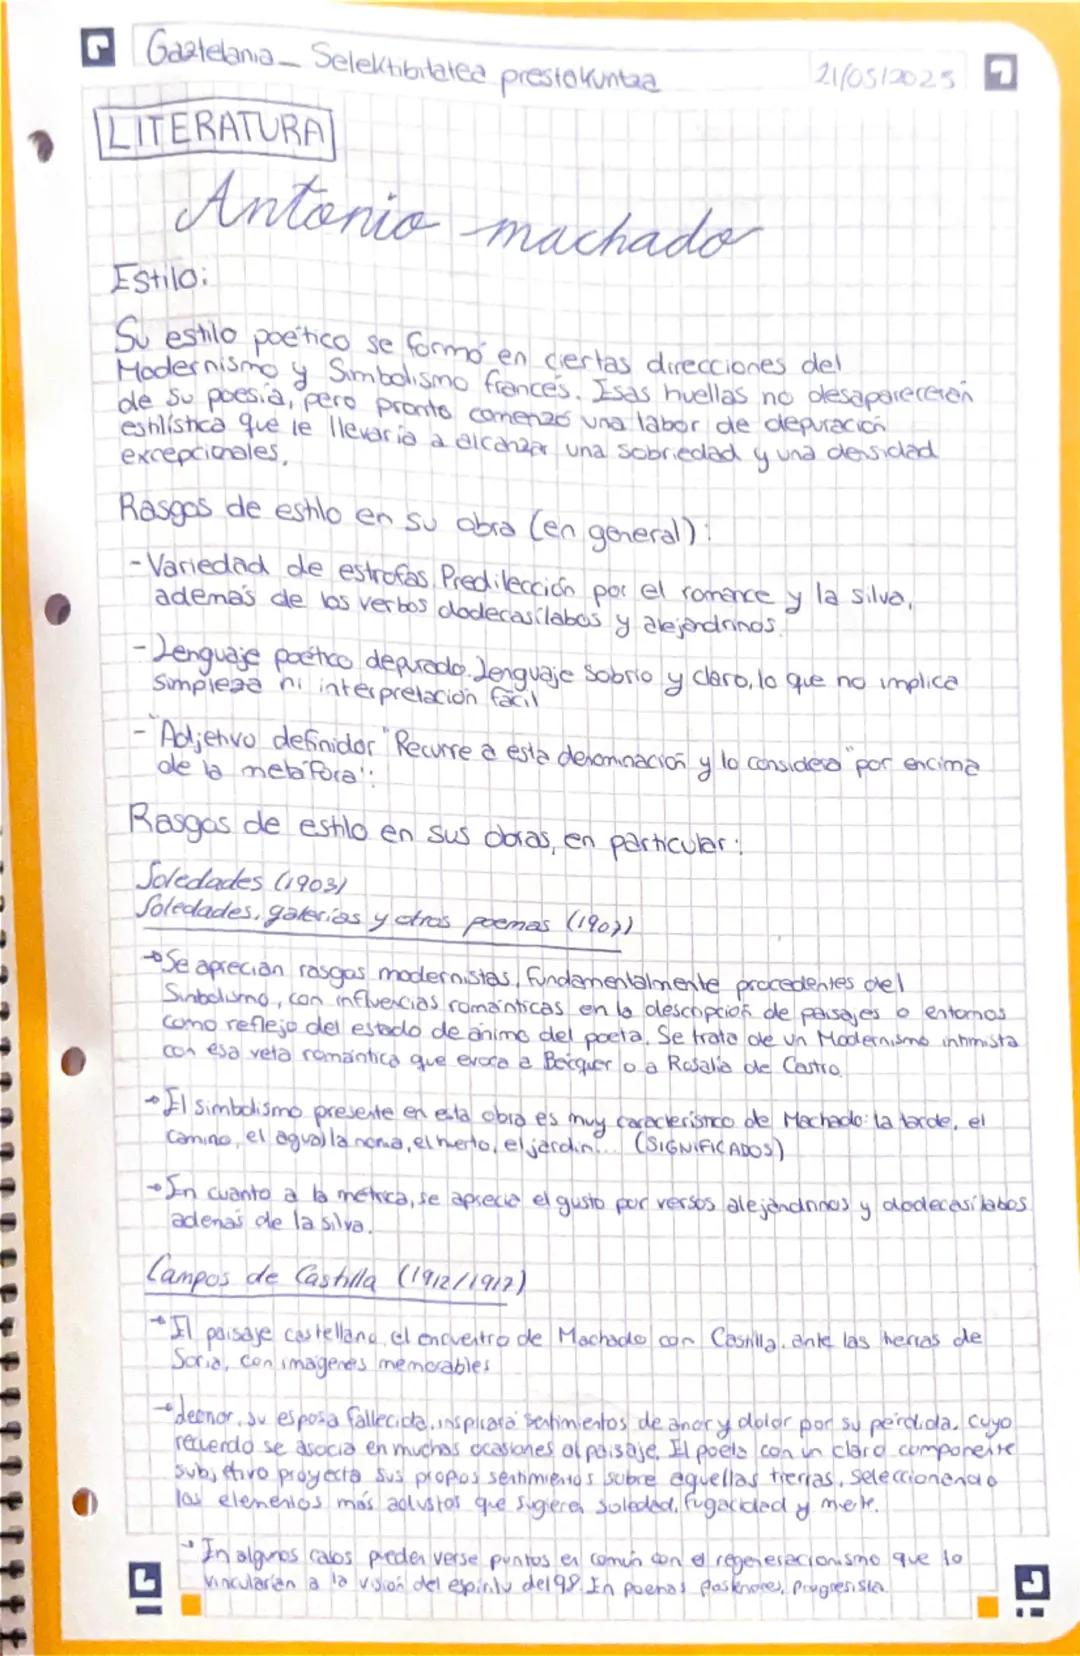 Gaztelania_ Selektibitatea prestakuntza
21/05/2025
LITERATURA
Antonio machado
Estilo:
Su estilo poético se formó en ciertas direcciones del
Modernismo y Simbolismo francés. Esas huellas no desaparecerán
de su poesía, pero pronto comenzó una labor de depuración
estilística que le llevaría a alcanzar una sobriedad y una densidad
excepcionales.
Rasgos de estilo en su obra (en general):
- Variedad de estrofas. Predilección por el romance y la silva,
además de los verbos dodecasílabos y alejandrinos.
- Lenguaje poético depurado. Lenguaje sobrio y claro, lo que no implica
simpleza ni interpretación fácil
- "Adjetivo definidor" Recurre a esta denominación y lo considera "por encima
de la metáfora".
Rasgos de estilo en sus obras, en particular:
Soledades (1903)
Soledades, galerías y otros poemas (1907)
→ Se aprecian rasgos modernistas, fundamentalmente procedentes del
Simbolismo, con influencias románticas en la descripción de paisajes o entornos
como reflejo del estado de ánimo del poeta. Se trata de un Modernismo intimista
con esa veta romántica que evoca a Bécquer o a Rosalía de Castro.
→ El simbolismo presente en esta obra es muy característico de Machado: la tarde, el
camino, el agua, la noria, el huerto, el jardín... (SIGNIFICADOS)
→ En cuanto a la métrica, se aprecia el gusto por versos alejandrinos y dodecasílabos
además de la silva.
Campos de Castilla (1912/1917)
→ El paisaje castellano, el encuentro de Machado con Castilla, ante las tierras de
Soria, con imágenes memorables
→ Leonor, su esposa fallecida, inspirará sentimientos de amor y dolor por su pérdida, cuyo
recuerdo se asocia en muchas ocasiones al paisaje. El poeta con un claro componente
subjetivo proyecta sus propios sentimientos sobre aquellas tierras, seleccionando
los elementos más adustos que sugieren soledad, fugacidad y muerte.
→ En algunos casos pueden verse puntos en común con el regeneracionismo que lo
vincularían a la visión del espíritu del 98. En poemas posteriores, progresista